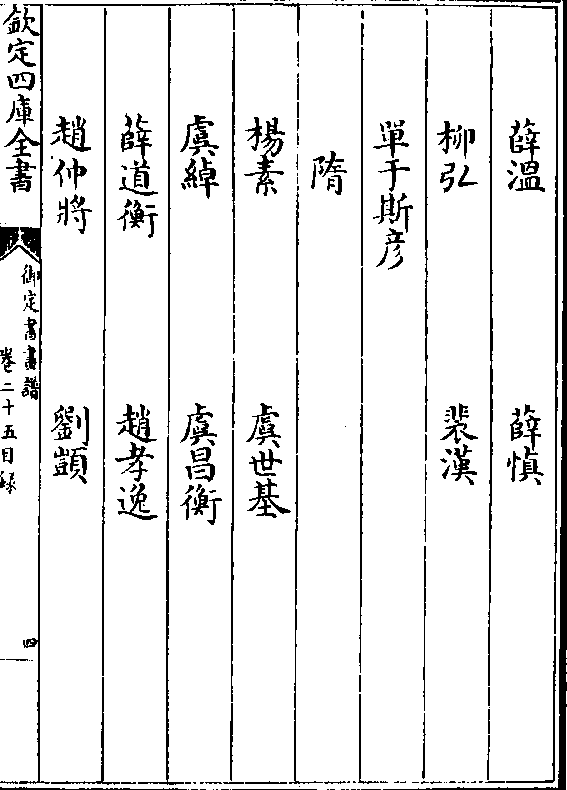 薛溫　薛慎
柳弘　裴漢
單于斯彦
隋
楊素　虞世基
虞綽　虞昌衡
薛道衡　趙孝逸
趙仲將　劉顗
欽定四庫全書
御定書畫譜
卷二十五目録
四